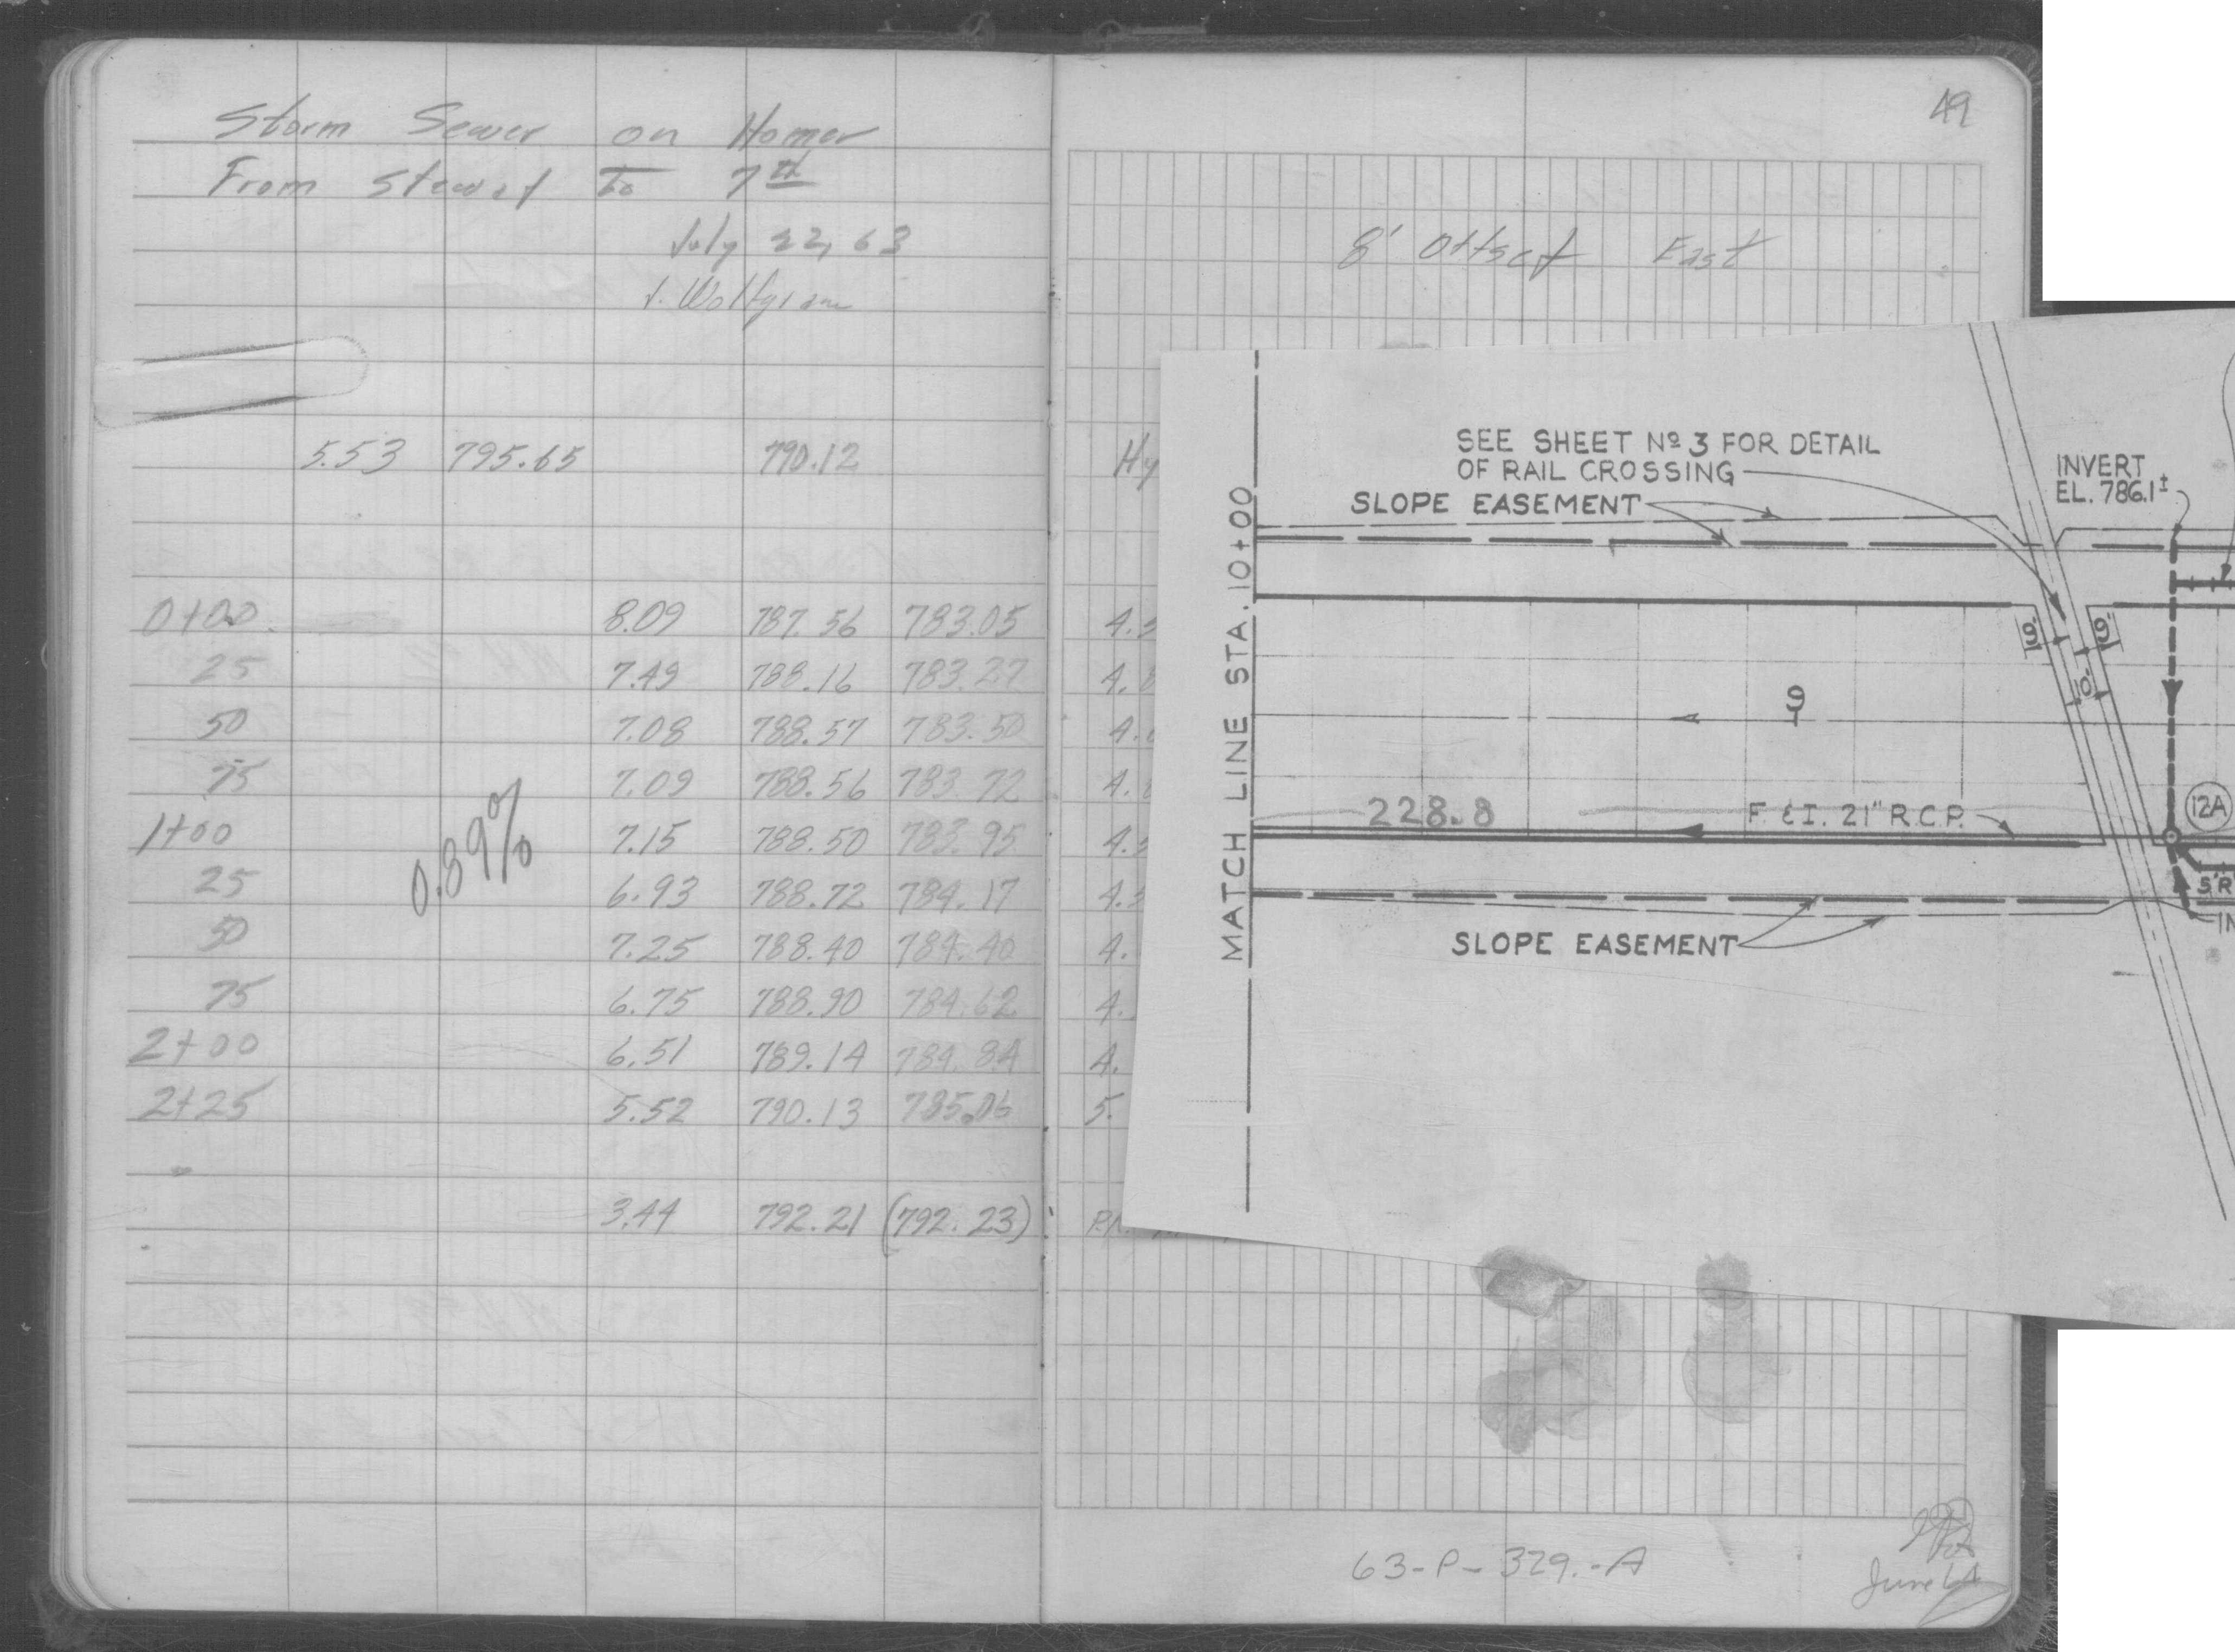 Storm Sewer on Homer
From Stewart to 7th
July 22, 63
J. Wolfgram
49
8' Offset East
5.53 795.65 790.12 Hy
0+00 8.09 787.56 783.05 4.5
25 7.49 788.16 783.27 4.8
50 7.08 788.57 783.50
75 7.09 788.56 783.72 4.8
1+00 7.15 788.50 783.95 4.5
25 6.93 788.72 784.17 4.5
50 7.25 788.40 784.40 4.
75 6.75 788.90 784.62 4.
2+00 6.51 789.14 784.84 4.
2+25 5.52 790.13 785.06 5.
0.89%
3.44 792.21 (792.23) P.N.
SEE SHEET Nº 3 FOR DETAIL
OF RAIL CROSSING
SLOPE EASEMENT
INVERT
EL. 786.1±
MATCH LINE STA. 10+00
9'
9'
10'
9
228.8
F. & I. 21" R.C.P.
12A
5'R
IN
SLOPE EASEMENT
63-P-329.-A
June 64